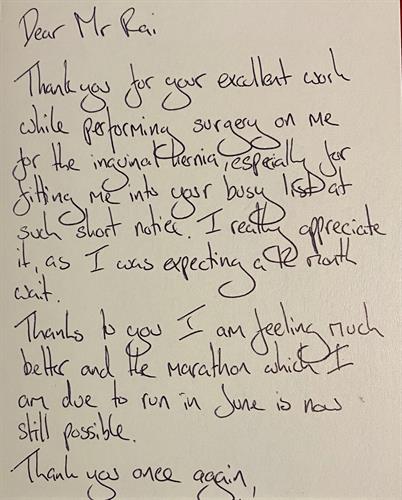 Dear Mr Rai
Thank you for your excellent work
while performing surgery on me
for the inguinal hernia, especially for
fitting me into your busy list at
such short notice. I really appreciate
it, as I was expecting a 12 month
wait.
Thanks to you I am feeling much
better and the marathon which I
am due to run in June is now
still possible.
Thank you once again,